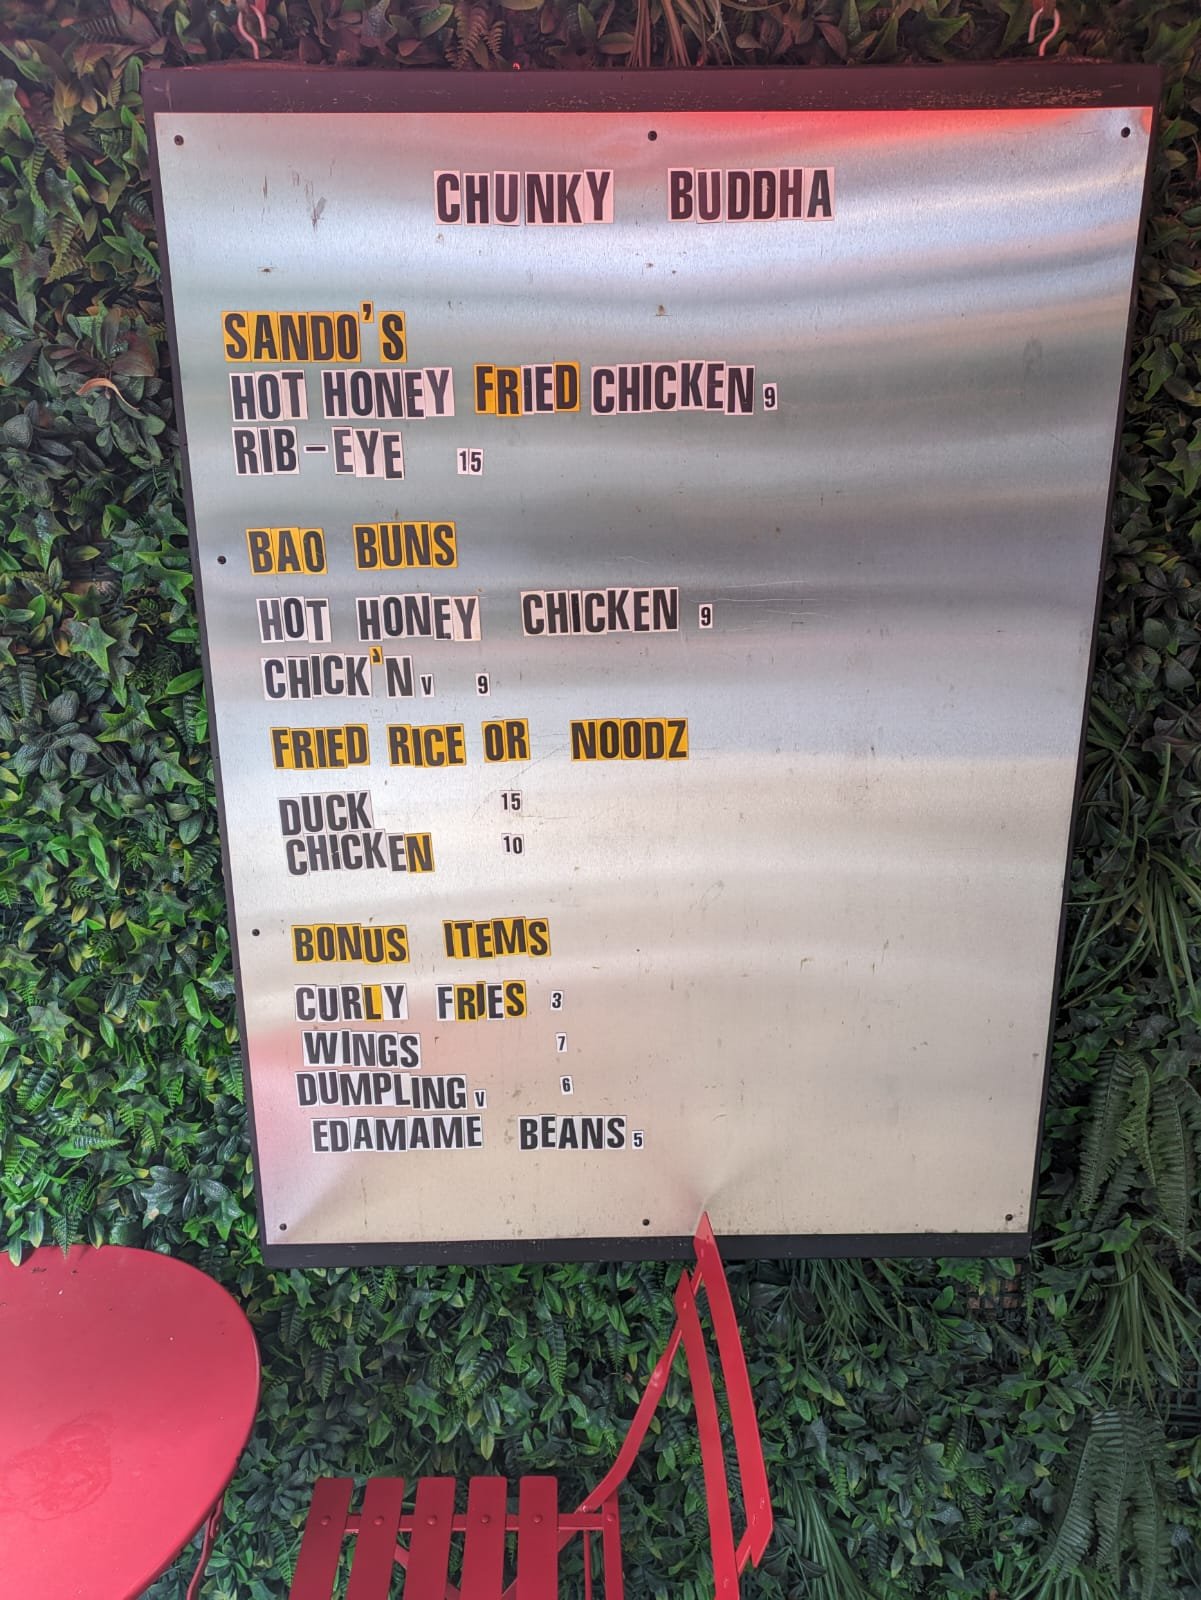 CHUNKY BUDDHA
SANDO'S
HOT HONEY FRIED CHICKEN 9
RIB-EYE 15
BAO BUNS
HOT HONEY CHICKEN 9
CHICK'N V 9
FRIED RICE OR NOODZ
DUCK 15
CHICKEN 10
BONUS ITEMS
CURLY FRIES 3
WINGS 7
DUMPLING V 6
EDAMAME BEANS 5